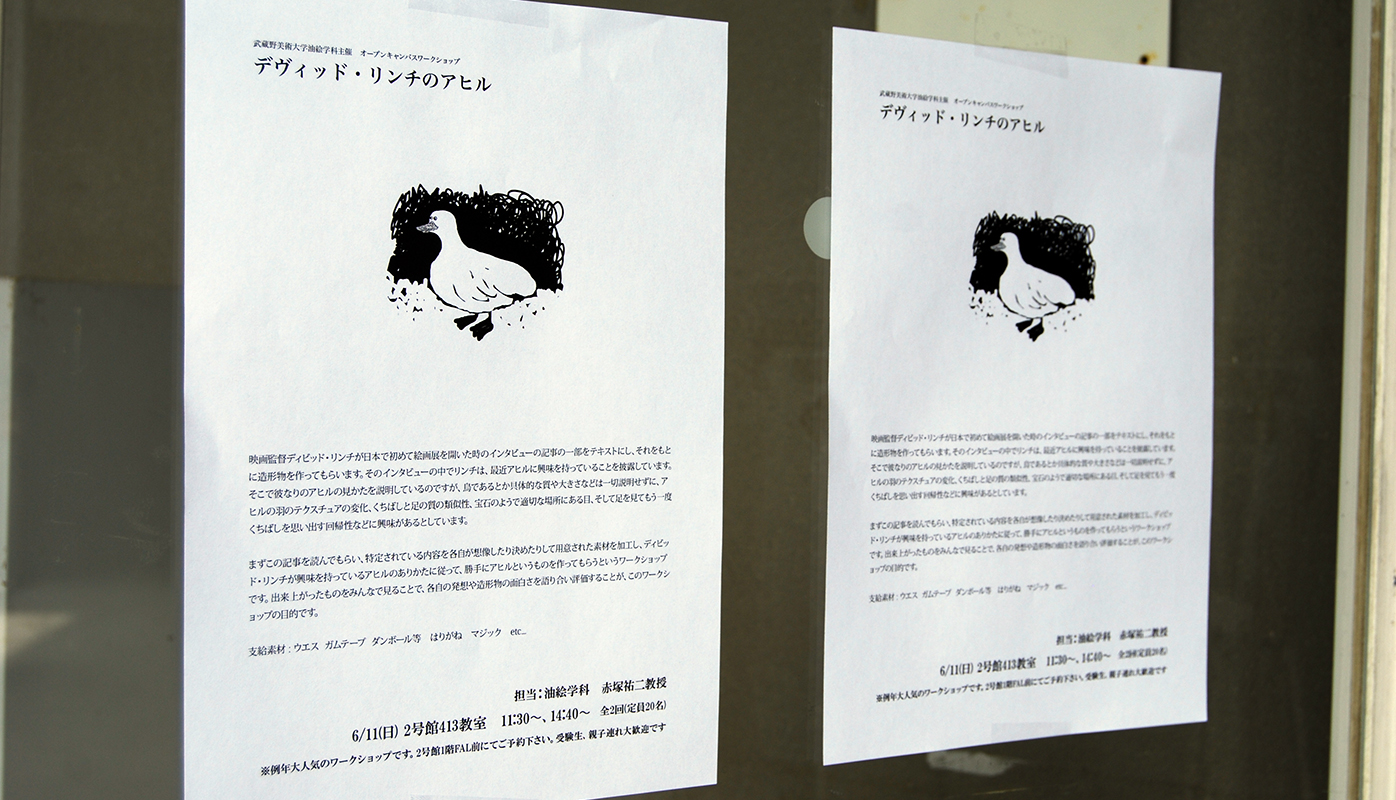 武蔵野美術大学油絵学科主催　オープンキャンパスワークショップ
デヴィッド・リンチのアヒル
映画監督ディビッド・リンチが日本で初めて絵画展を開いた時のインタビューの記事の一部をテキストにし、それをもと
に造形物を作ってもらいます。そのインタビューの中でリンチは、最近アヒルに興味を持っていることを披露しています。
そこで彼なりのアヒルの見かたを説明しているのですが、鳥であるとか具体的な質や大きさなどは一切説明せずに、ア
ヒルの羽のテクスチュアの変化、くちばしと足の質の類似性、宝石のようで適切な場所にある目、そして足を見てもう一度
くちばしを思い出す回帰性などに興味があるとしています。
まずこの記事を読んでもらい、特定されている内容を各自が想像したり決めたりして用意された素材を加工し、ディビッ
ド・リンチが興味を持っているアヒルのありかたに従って、勝手にアヒルというものを作ってもらうというワークショップ
です。出来上がったものをみんなで見ることで、各自の発想や造形物の面白さを語り合い評価することが、このワークシ
ョップの目的です。
支給素材：ウエス ガムテープ ダンボール等　はりがね　マジック　etc...
担当：油絵学科　赤塚祐二教授
6/11(日) 2号館413教室　11:30〜、14:40〜　全2回(定員20名)
※例年大人気のワークショップです。2号館1階FAL前にてご予約下さい。受験生、親子連れ大歓迎です
武蔵野美術大学油絵学科主催　オープンキャンパスワークショップ
デヴィッド・リンチのアヒル
映画監督ディビッド・リンチが日本で初めて絵画展を開いた時のインタビューの記事の一部をテキストにし、それをもと
に造形物を作ってもらいます。そのインタビューの中でリンチは、最近アヒルに興味を持っていることを披露しています。
そこで彼なりのアヒルの見かたを説明しているのですが、鳥であるとか具体的な質や大きさなどは一切説明せずに、ア
ヒルの羽のテクスチュアの変化、くちばしと足の質の類似性、宝石のようで適切な場所にある目、そして足を見てもう一度
くちばしを思い出す回帰性などに興味があるとしています。
まずこの記事を読んでもらい、特定されている内容を各自が想像したり決めたりして用意された素材を加工し、ディビッ
ド・リンチが興味を持っているアヒルのありかたに従って、勝手にアヒルというものを作ってもらうというワークショップ
です。出来上がったものをみんなで見ることで、各自の発想や造形物の面白さを語り合い評価することが、このワークシ
ョップの目的です。
支給素材：ウエス ガムテープ ダンボール等　はりがね　マジック　etc...
担当：油絵学科　赤塚祐二教授
6/11(日) 2号館413教室　11:30〜、14:40〜　全2回(定員20名)
※例年大人気のワークショップです。2号館1階FAL前にてご予約下さい。受験生、親子連れ大歓迎です